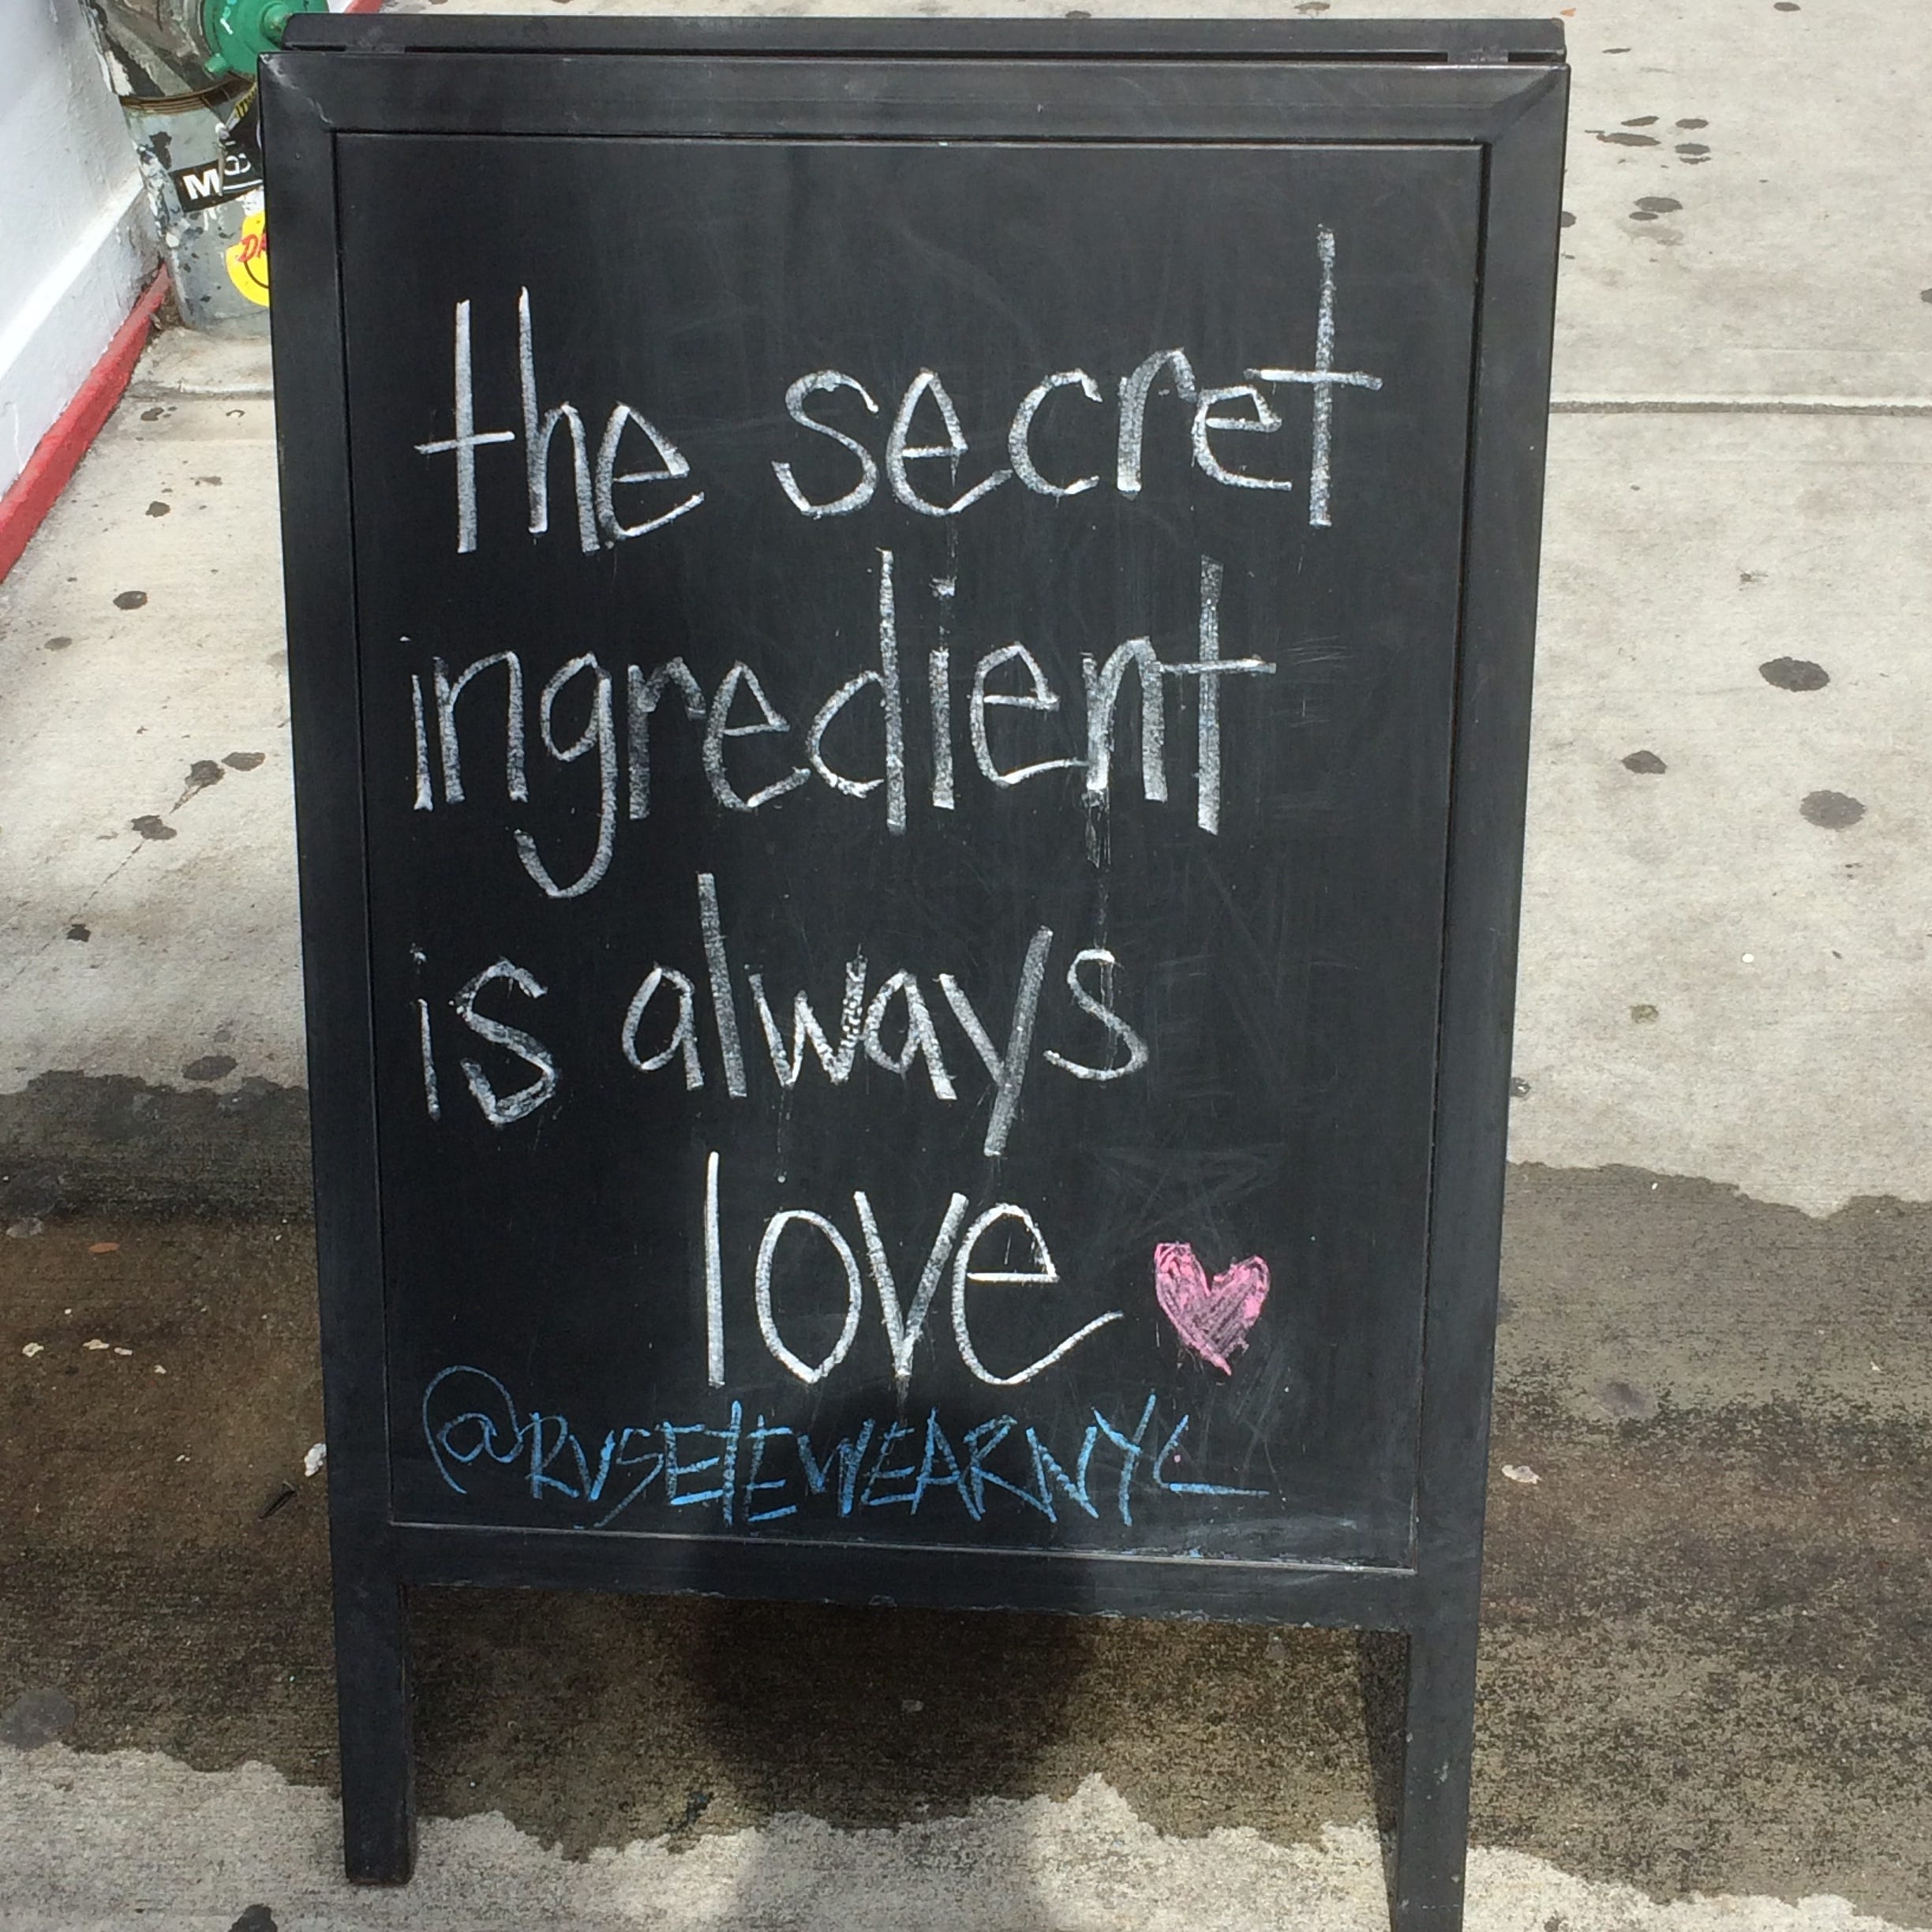 the secret
ingredient
is always
love
@RVSETEWEARNYC